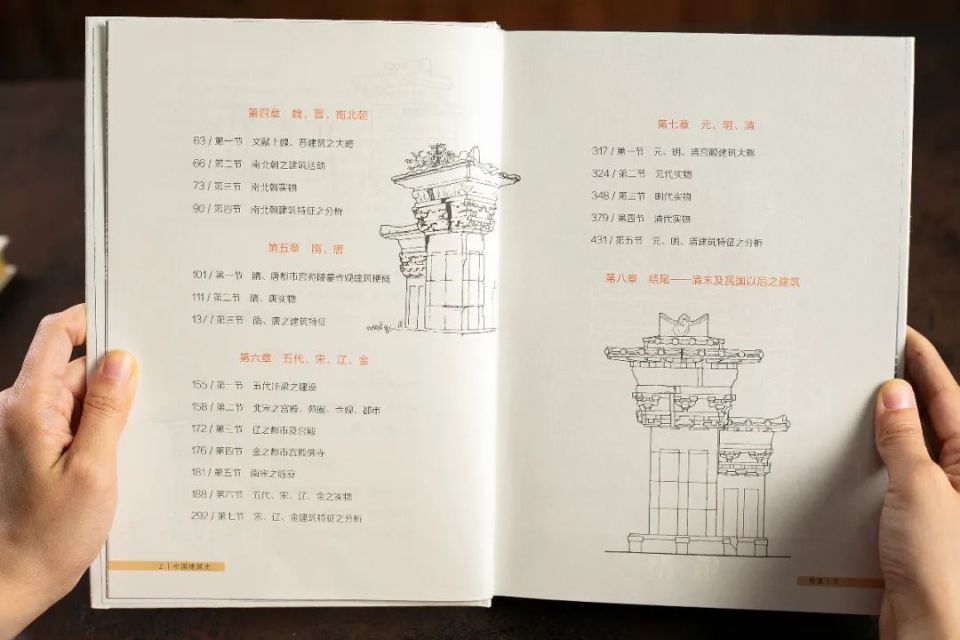 第四章 魏、晋、南北朝
63 / 第一节 文献上魏、晋建筑之大略
66 / 第二节 南北朝之建筑活动
73 / 第三节 南北朝实物
90 / 第四节 南北朝建筑特征之分析
第五章 隋、唐
101 / 第一节 隋、唐都市宫苑陵墓寺观建筑梗概
111 / 第二节 隋、唐实物
137 / 第三节 隋、唐之建筑特征
第六章 五代、宋、辽、金
155 / 第一节 五代汴梁之建设
158 / 第二节 北宋之宫殿、苑囿、寺观、都市
172 / 第三节 辽之都市及宫殿
176 / 第四节 金之都市宫殿佛寺
181 / 第五节 南宋之临安
188 / 第六节 五代、宋、辽、金之实物
292 / 第七节 宋、辽、金建筑特征之分析
2 | 中国建筑史
第七章 元、明、清
317 / 第一节 元、明、清宫殿建筑大略
324 / 第二节 元代实物
348 / 第三节 明代实物
379 / 第四节 清代实物
431 / 第五节 元、明、清建筑特征之分析
第八章 结尾——清末及民国以后之建筑